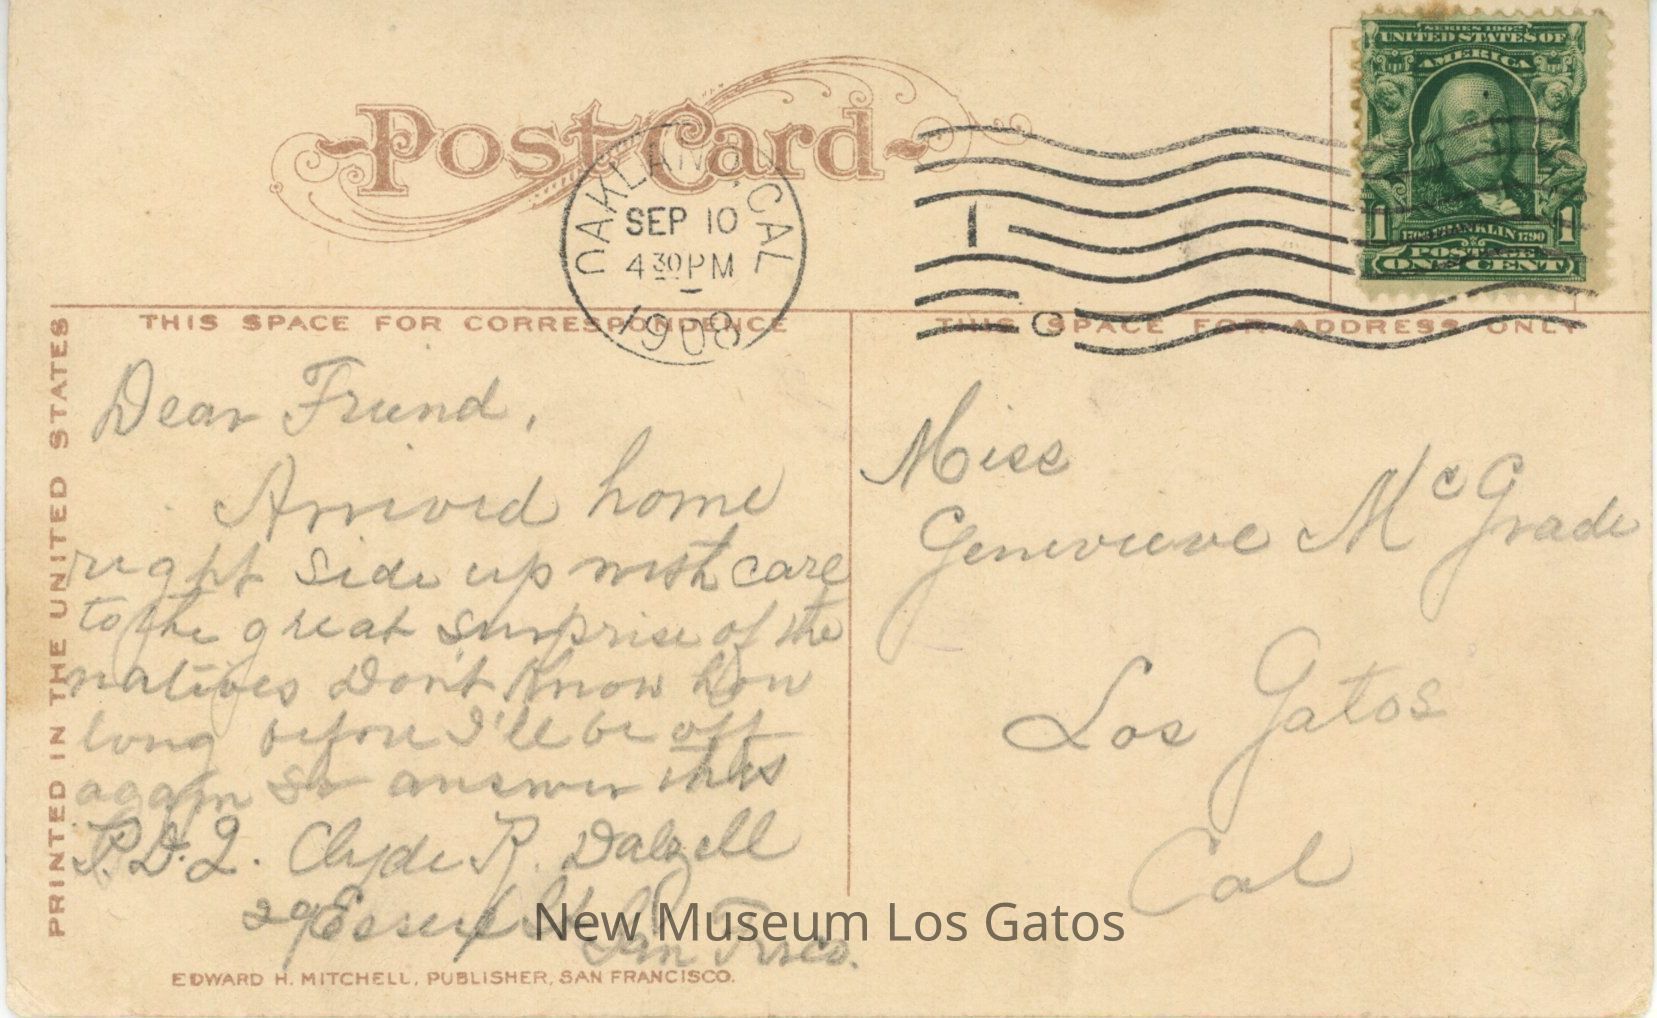 Post Card
OAKLAND, CAL
SEP 10
4 30 PM
1908
SERIES 1902
UNITED STATES OF
AMERICA
1 1
1706 FRANKLIN 1790
POSTAGE
ONE CENT
THIS SPACE FOR CORRESPONDENCE
THIS SPACE FOR ADDRESS ONLY
PRINTED IN THE UNITED STATES
Dear Friend,
Arrived home
right side up with care
to the great surprise of the
natives Don't Know how
long before I'll be off
again so answer this
P.D.Q. Clyde R. Dalzell
29 Essex St
San Frisco.
Miss
Genevieve McGrade
Los Gatos
Cal
New Museum Los Gatos
EDWARD H. MITCHELL, PUBLISHER, SAN FRANCISCO.